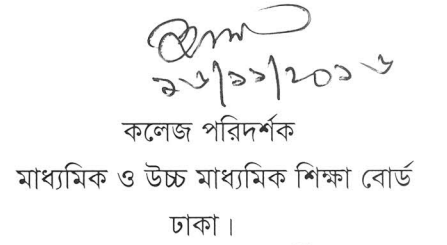 ১৬/১১/২০১৬
কলেজ পরিদর্শক
মাধ্যমিক ও উচ্চ মাধ্যমিক শিক্ষা বোর্ড
ঢাকা।